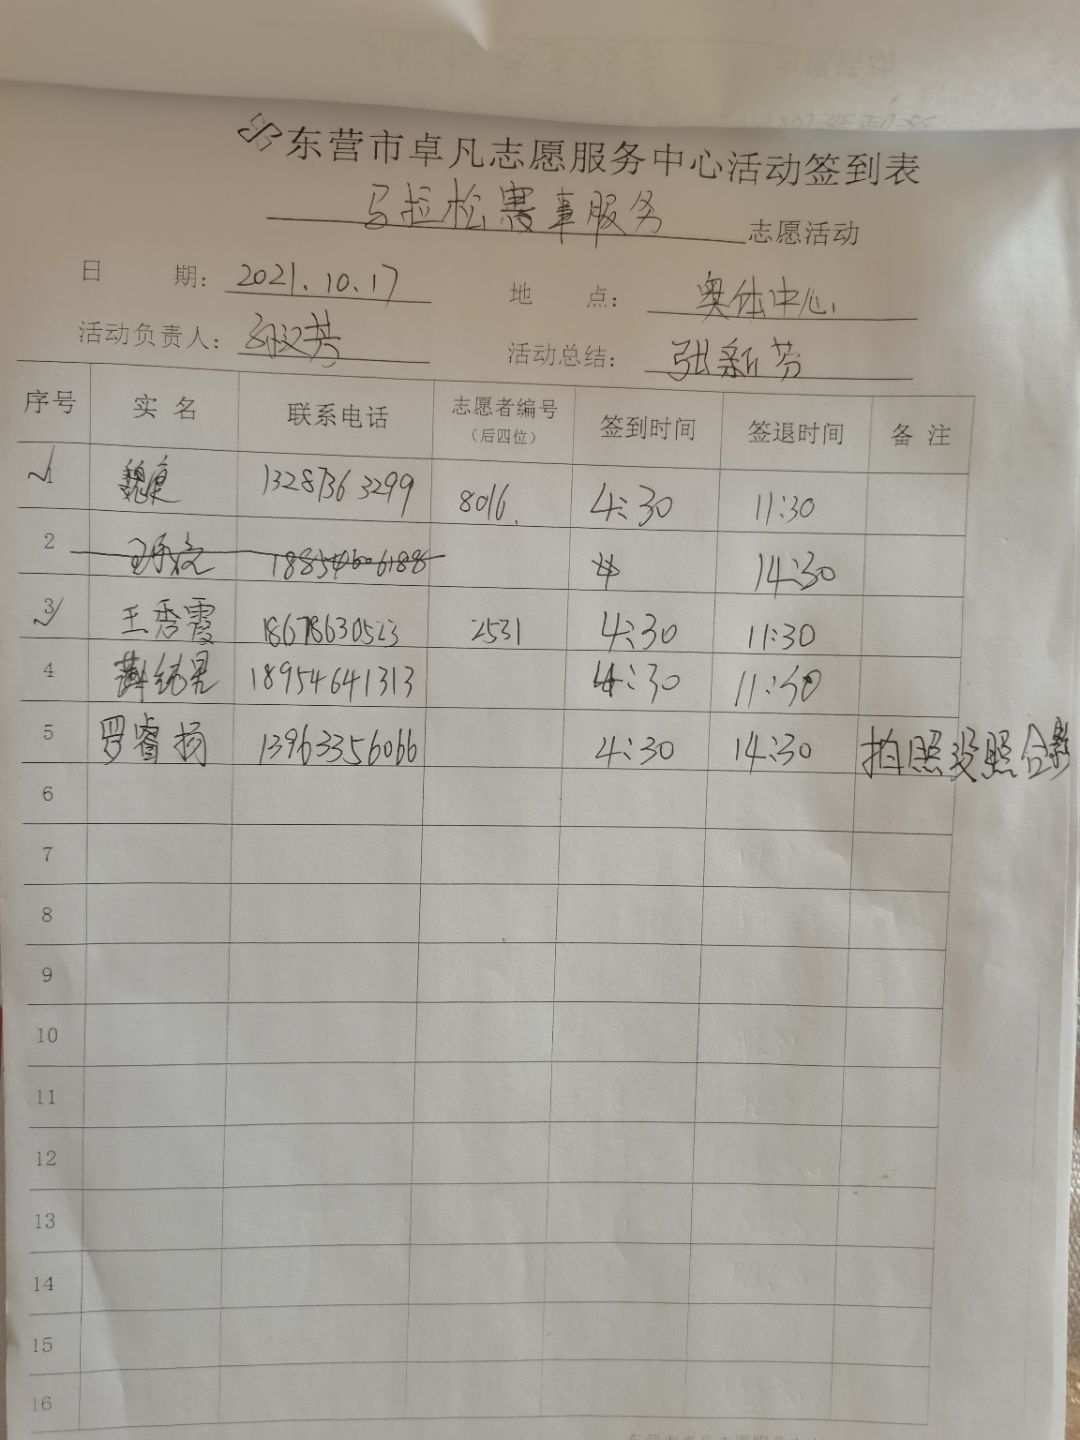 东营市卓凡志愿服务中心活动签到表
马拉松赛事服务 志愿活动
日 期: 2021.10.17 地 点: 奥体中心
活动负责人: 芳 活动总结: 张新芬
序号 实名 联系电话 志愿者编号(后四位) 签到时间 签退时间 备注
1 魏 13287363299 8016. 4:30 11:30
2 18854606188 14:30
3 王秀霞 18678630523 2531 4:30 11:30
4 18954641313 4:30 11:30
5 罗睿扬 13963356066 4:30 14:30 拍照没照合影
6
7
8
9
10
11
12
13
14
15
16